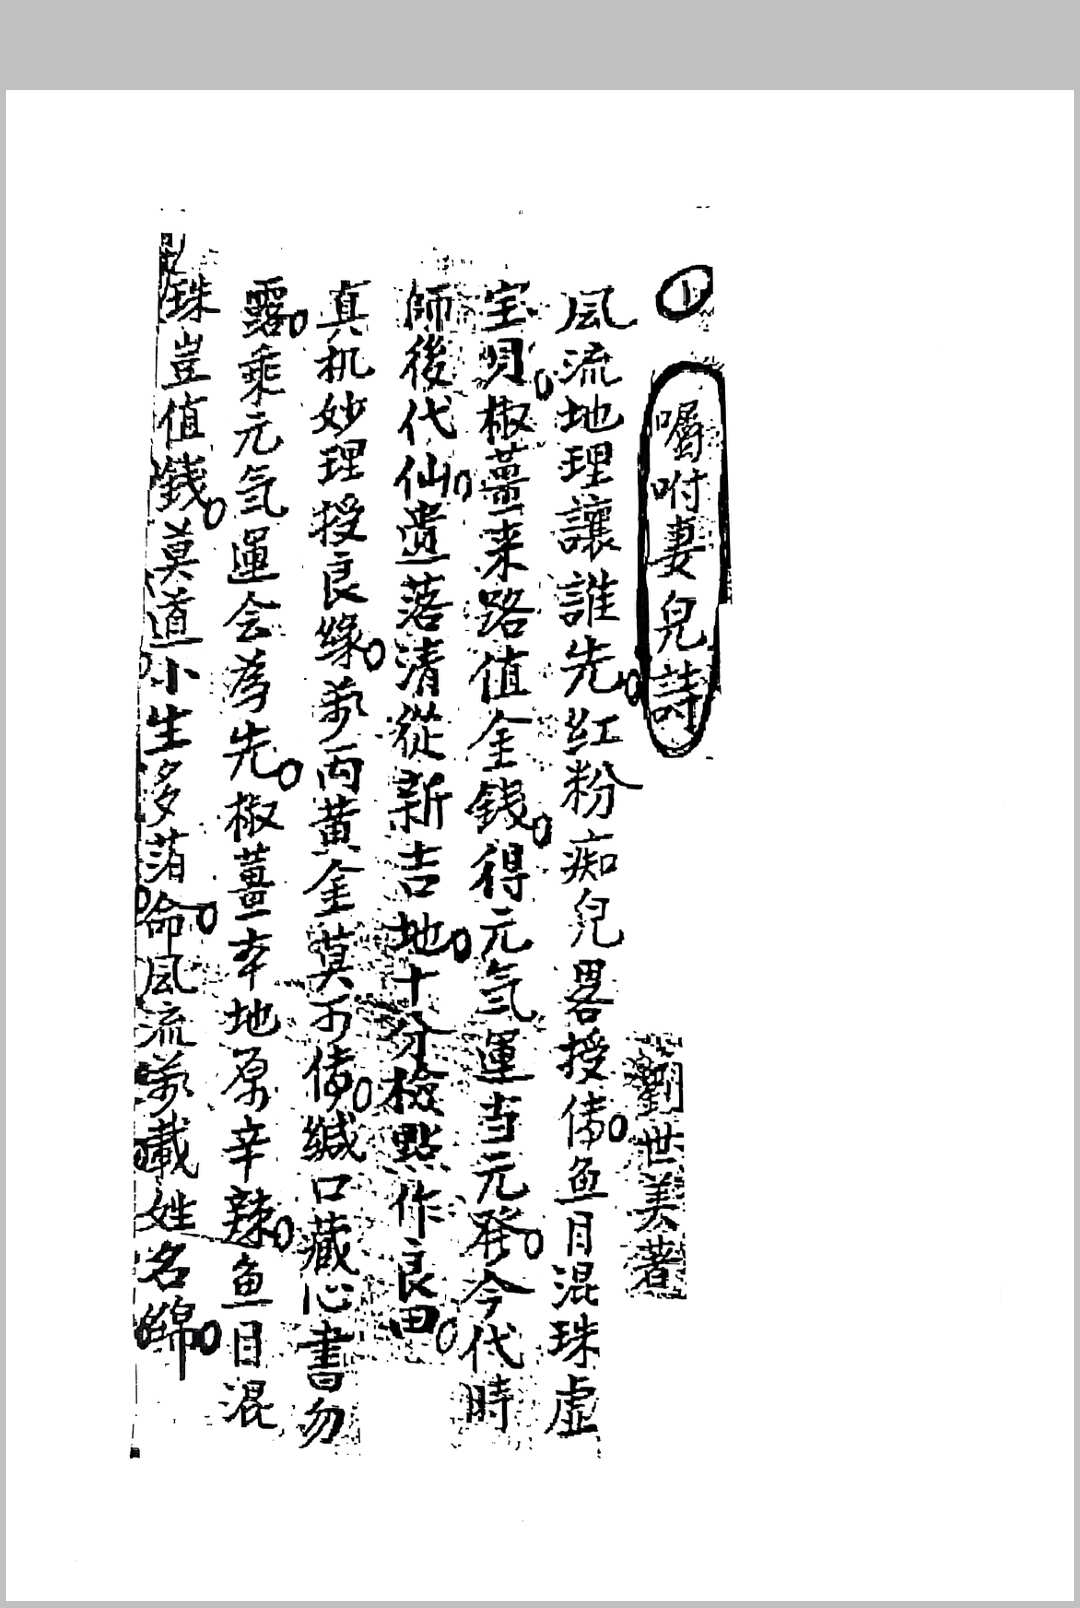 囑咐妻兒詩
劉世美著
風流地理讓誰先。紅粉痴兒畧授俻。魚目混珠虛
宝貝。椒薑来路值金錢。得元氣運当元發。今代時
師後代仙。遺落清從新吉地。十分檢點作良田。
真机妙理授良緣。萬両黄金莫可俻。緘口藏心書勿
露。乘元氣運会為先。椒薑本地原辛辣。魚目混
珠豈值錢。莫道小生多落命。風流萬載姓名綿。